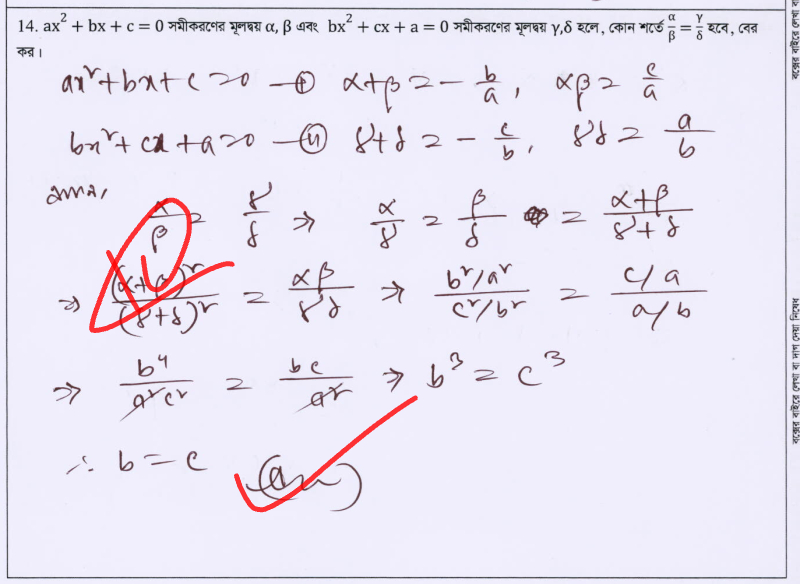 14. ax² + bx + c = 0 সমীকরণের মূলদ্বয় α, β এবং bx² + cx + a = 0 সমীকরণের মূলদ্বয় γ,δ হলে, কোন শর্তে α/β = γ/δ হবে, বের
কর।
ax² + bx + c = 0 —(i) α+β = - b/a, αβ = c/a
bx² + cx + a = 0 —(ii) γ+δ = - c/b, γδ = a/b
α/β = γ/δ ⇒ α/γ = β/δ = (α+β)/(γ+δ)
⇒ (α+β)²/(γ+δ)² = αβ/γδ ⇒ (b²/a²)/(c²/b²) = (c/a)/(a/b)
⇒ b⁴/a²c² = bc/a² ⇒ b³ = c³
∴ b = c (Ans)
বক্সের বাইরে লেখা বা দাগ দেয়া নিষেধ